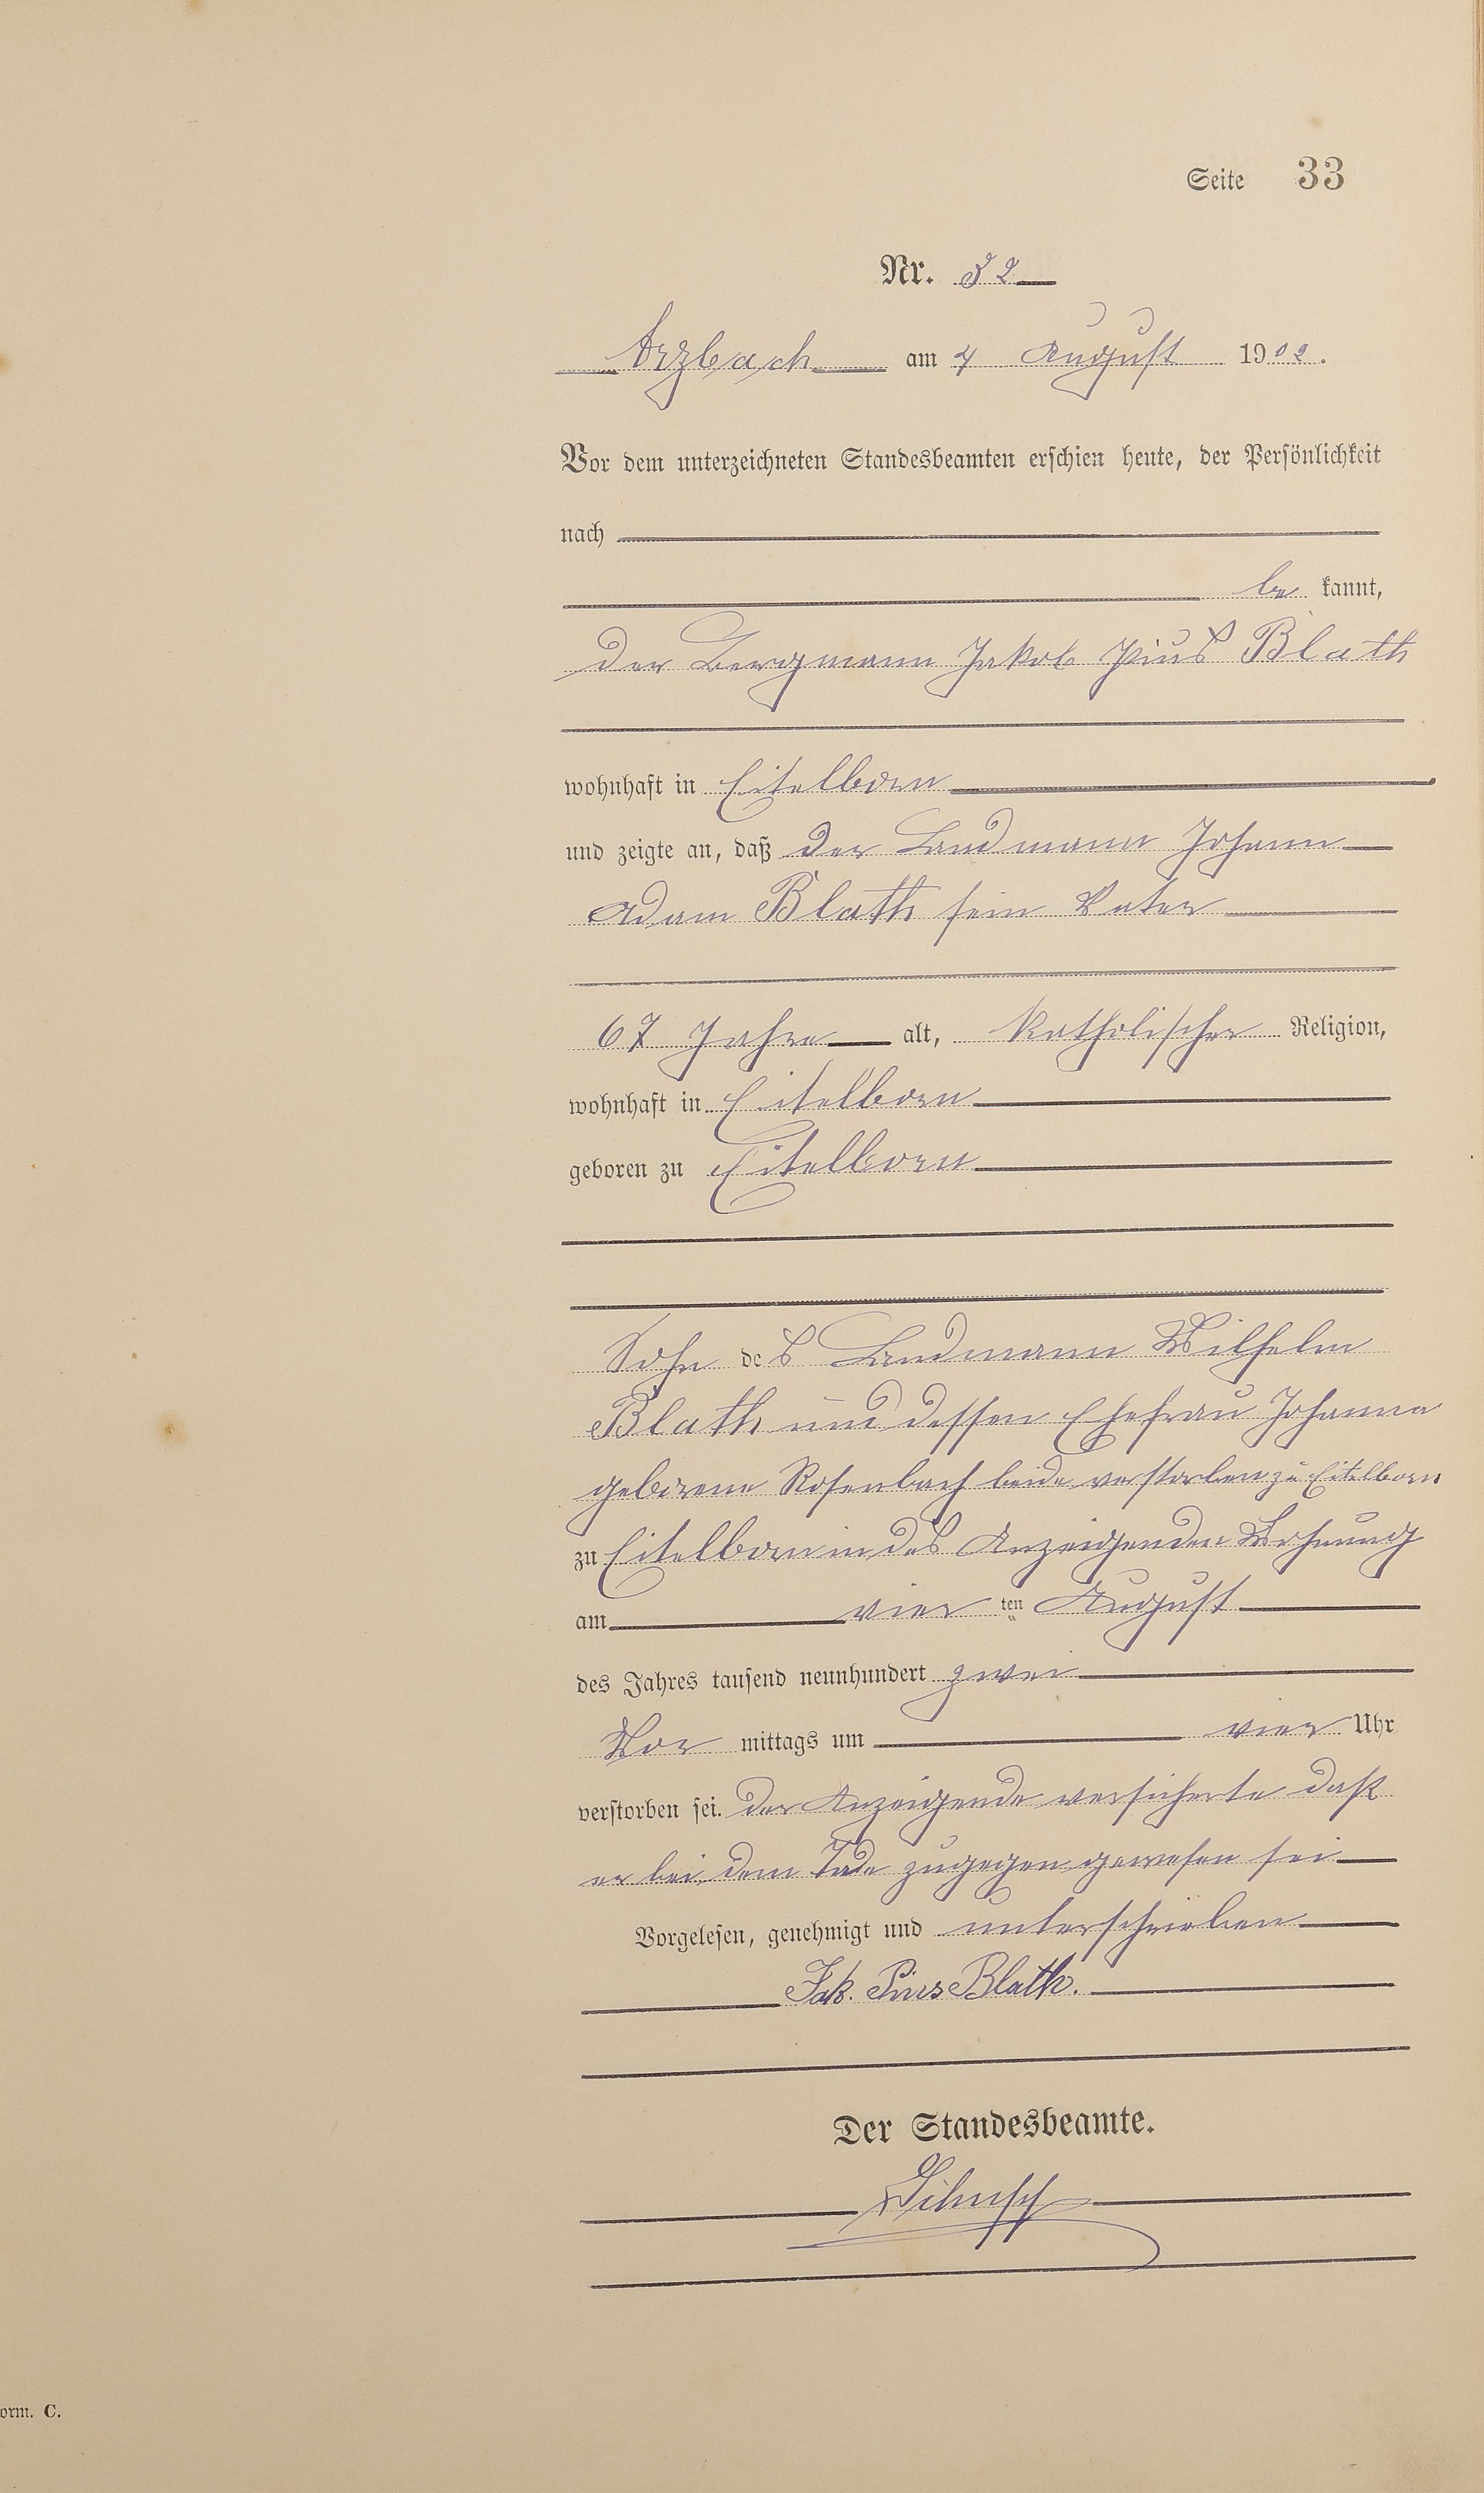 Seite 33
Nr. 32
Arzbach am 4 August 1902.
Vor dem unterzeichneten Standesbeamten erschien heute, der Persönlichkeit
nach
be kannt,
der Bergmann Jakob Pius Blath
wohnhaft in Eitelborn
und zeigte an, daß der Landmann Johann
Adam Blath sein Vater
67 Jahre alt, katholischer Religion,
wohnhaft in Eitelborn
geboren zu Eitelborn
Sohn des Landmann Wilhelm
Blath und dessen Ehefrau Johanna
geborene Rosenbach beide verstorben zu Eitelborn
zu Eitelborn in des Anzeigenden Wohnung
am vier ten August
des Jahres tausend neunhundert zwei
Vor mittags um vier Uhr
verstorben sei. der Anzeigende versicherte daß
er bei dem Tode zugegen gewesen sei
Vorgelesen, genehmigt und unterschrieben
Jak. Pius Blath.
Der Standesbeamte.
orm. C.